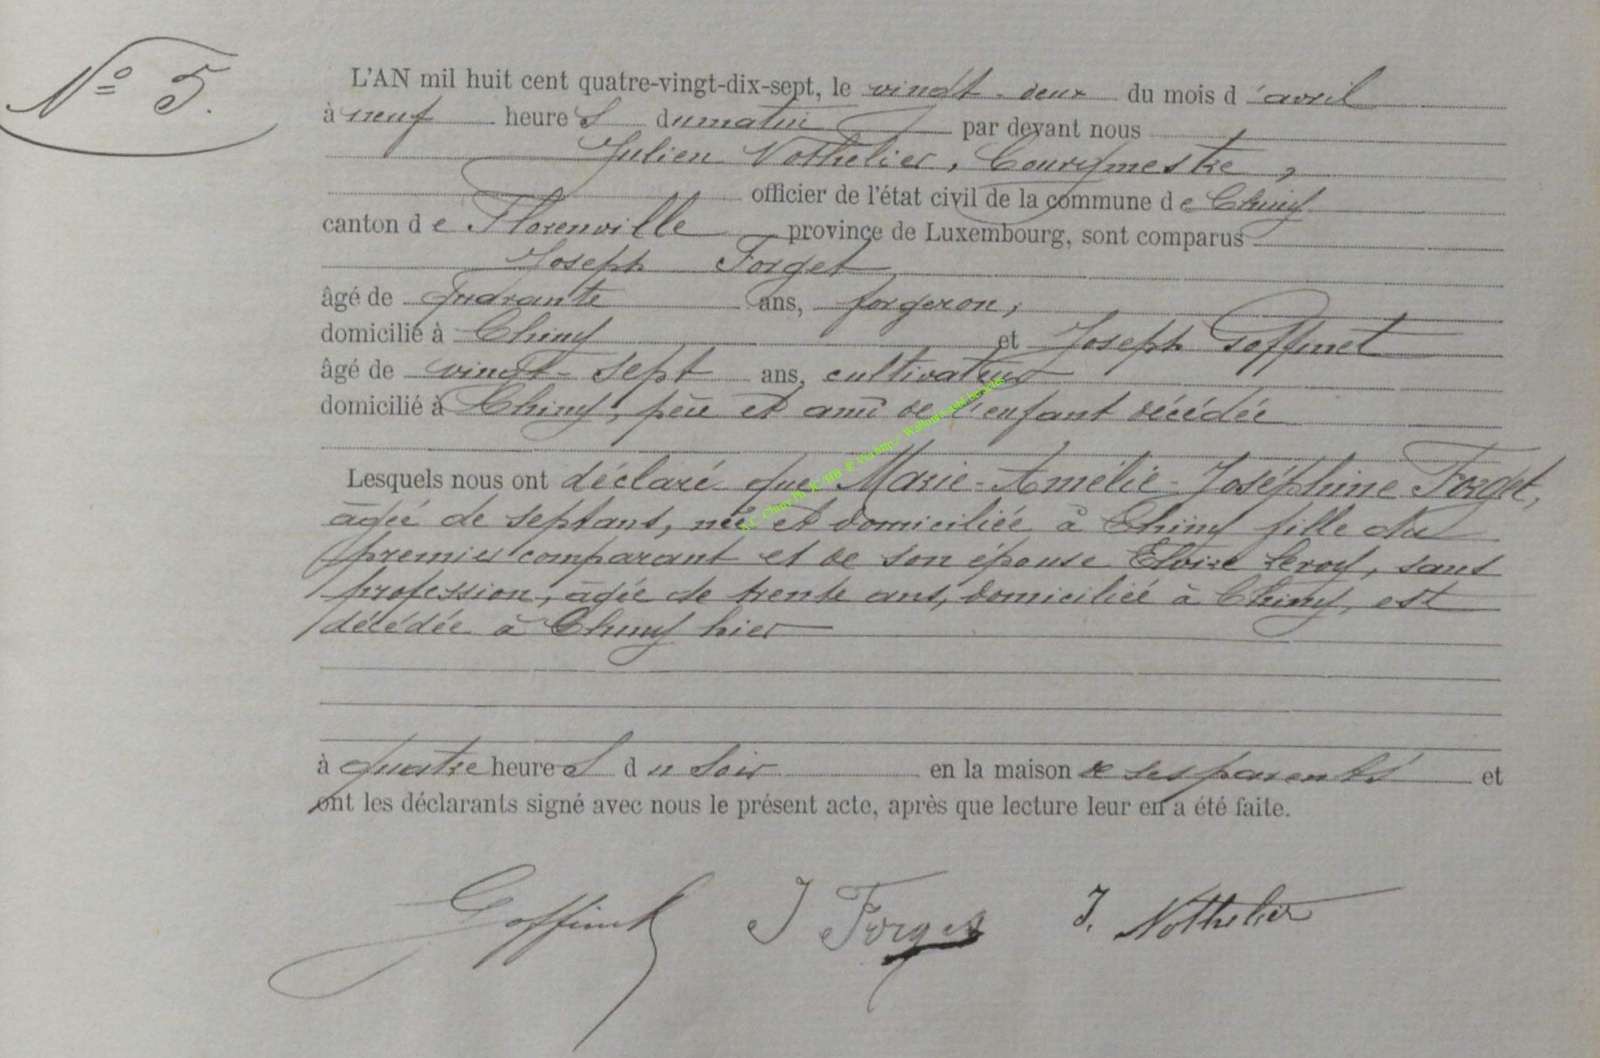 N° 5.
L'AN mil huit cent quatre-vingt-dix-sept, le vingt-deux du mois d'avril
à neuf heures du matin par devant nous
Julien Nothelier, Bourgmestre,
officier de l'état civil de la commune de Chiny
canton de Florenville province de Luxembourg, sont comparus
Joseph Forget,
âgé de quarante ans, forgeron,
domicilié à Chiny et Joseph Goffinet
âgé de vingt-sept ans, cultivateur
domicilié à Chiny, père et ami de l'enfant décédée
Lesquels nous ont déclaré que Marie-Amélie-Joséphine Forget,
âgée de sept ans, née et domiciliée à Chiny fille du
premier comparant et de son épouse Leroy, sans
profession, âgée de trente ans, domiciliée à Chiny, est
décédée à Chiny hier
à quatre heures du soir en la maison de ses parents et
ont les déclarants signé avec nous le présent acte, après que lecture leur en a été faite.
Goffinet J Forget J. Nothelier